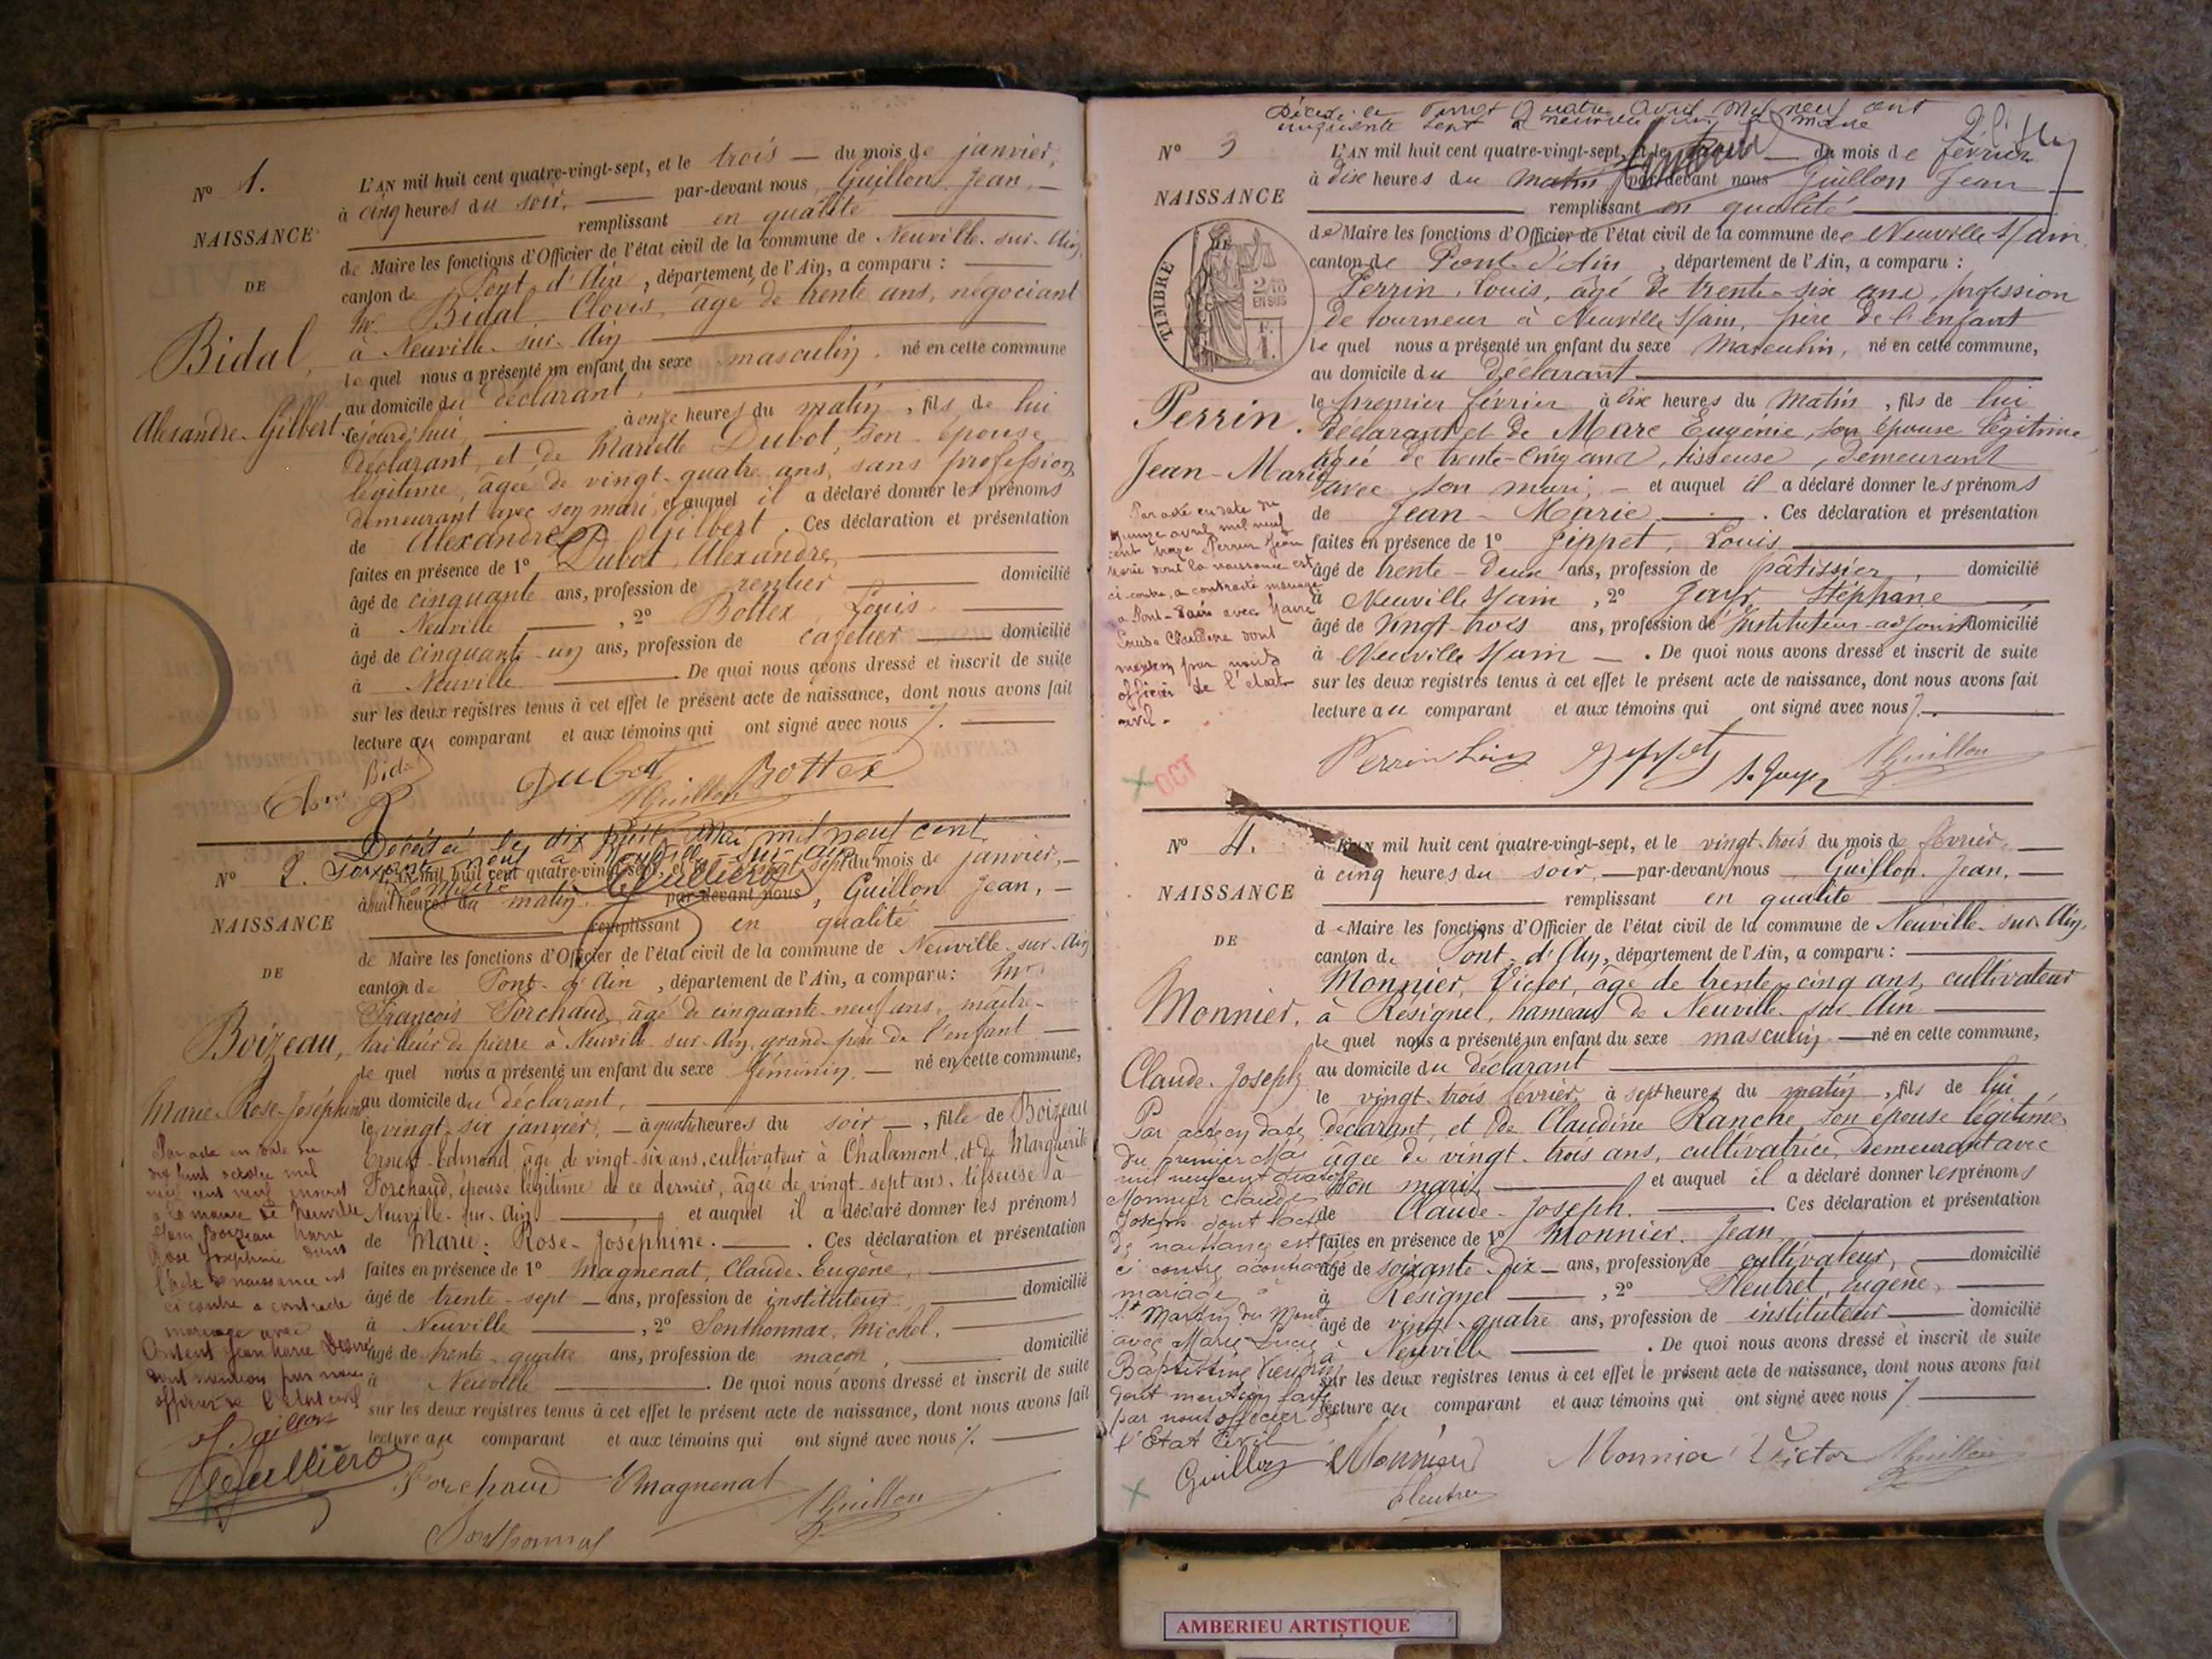 No 1.
NAISSANCE
DE
Bidal,
Alexandre-Gilbert
L'AN mil huit cent quatre-vingt-sept, et le trois — du mois de janvier,
à cinq heures du soir, — par-devant nous, Guillon, Jean, —
remplissant en qualité
de Maire les fonctions d'Officier de l'état civil de la commune de Neuville-sur-Ain,
canton de Pont-d'Ain, département de l'Ain, a comparu :
Mr Bidal Clovis, âgé de trente ans, négociant
à Neuville-sur-Ain
lequel nous a présenté un enfant du sexe masculin, né en cette commune
au domicile du déclarant,
cejourd'hui, à onze heures du matin, fils de lui
déclarant, et de Mariette Dubot, son épouse
légitime, âgée de vingt-quatre ans, sans profession,
demeurant avec son mari, et auquel il a déclaré donner les prénoms
de Alexandre Gilbert. Ces déclaration et présentation
faites en présence de 1o Dubot, Alexandre,
âgé de cinquante ans, profession de rentier domicilié
à Neuville, 2o Bottex, Louis
âgé de cinquante-un ans, profession de cafetier domicilié
à Neuville. De quoi nous avons dressé et inscrit de suite
sur les deux registres tenus à cet effet le présent acte de naissance, dont nous avons fait
lecture au comparant et aux témoins qui ont signé avec nous.
Bidal
Dubot
Bottex
JGuillon
Décédé le dix huit Mai mil neuf cent
soixante neuf à Neuville-sur-Ain
Le Maire
No 2.
NAISSANCE
DE
Boizeau,
Marie-Rose-Joséphine
L'AN mil huit cent quatre-vingt-sept, et le vingt-sept du mois de janvier, —
à huit heures du matin, par-devant nous, Guillon Jean, —
remplissant en qualité
de Maire les fonctions d'Officier de l'état civil de la commune de Neuville-sur-Ain
canton de Pont-d'Ain, département de l'Ain, a comparu : Mr
François Forchaud, âgé de cinquante-neuf ans, maître-
tailleur de pierre à Neuville-sur-Ain, grand-père de l'enfant —
lequel nous a présenté un enfant du sexe féminin, — né en cette commune,
au domicile du déclarant,
le vingt-six janvier, — à quatre heures du soir —, fille de Boizeau
Ernest-Edmond, âgé de vingt-six ans, cultivateur à Chalamont, et de Marguerite
Forchaud, épouse légitime de ce dernier, âgée de vingt-sept ans, tisseuse à
Neuville-sur-Ain et auquel il a déclaré donner les prénoms
de Marie-Rose-Joséphine. Ces déclaration et présentation
faites en présence de 1o Magnenat, Claude-Eugène,
âgé de trente-sept — ans, profession de instituteur, domicilié
à Neuville, 2o Sonthonnax, Michel,
âgé de trente-quatre ans, profession de maçon, domicilié
à Neuville. De quoi nous avons dressé et inscrit de suite
sur les deux registres tenus à cet effet le présent acte de naissance, dont nous avons fait
lecture au comparant et aux témoins qui ont signé avec nous.
Par acte en date du
dix huit octobre mil
neuf cent neuf inscrit
à la mairie de Neuville
s/ain, Boizeau Marie
Rose Joséphine dont
l'acte de naissance est
ci contre a contracté
mariage avec
Jean Marie
dont mention par nous
officier de l'état civil
Forchaud
EMagnenat
JGuillon
Sonthonnax
Décédé le vingt quatre avril mil neuf cent
cinquante sept à Neuville
No 3
NAISSANCE
DE
TIMBRE
2/10
EN SUS
Perrin.
Jean-Marie
L'AN mil huit cent quatre-vingt-sept, et le du mois de février
à dix heures du matin par-devant nous Guillon Jean
remplissant en qualité
de Maire les fonctions d'Officier de l'état civil de la commune de Neuville s/ain,
canton de Pont-d'Ain, département de l'Ain, a comparu :
Perrin, Louis, âgé de trente-six ans, profession
de tourneur à Neuville s/ain, père de l'enfant
lequel nous a présenté un enfant du sexe Masculin, né en cette commune,
au domicile du déclarant
le premier février à dix heures du matin, fils de lui
déclarant et de Marc Eugénie, son épouse légitime
âgée de trente-cinq ans, tisseuse, demeurant
avec son mari, — et auquel il a déclaré donner les prénoms
de Jean-Marie. Ces déclaration et présentation
faites en présence de 1o Jippet, Louis
âgé de trente-deux ans, profession de pâtissier, domicilié
à Neuville s/ain, 2o Goyr Stéphane
âgé de vingt-trois ans, profession de Instituteur-adjoint domicilié
à Neuville s/ain —. De quoi nous avons dressé et inscrit de suite
sur les deux registres tenus à cet effet le présent acte de naissance, dont nous avons fait
lecture au comparant et aux témoins qui ont signé avec nous.
Par acte en date du
quinze avril mil neuf
cent treize Perrin Jean
Marie dont la naissance est
ci-contre, a contracté mariage
à Pont-d'ain avec
Louise Claudine dont
mention par nous
officier de l'état
civil.
Perrin Louis
JGuillon
No 4.
NAISSANCE
DE
Monnier,
Claude-Joseph
L'AN mil huit cent quatre-vingt-sept, et le vingt-trois du mois de février,
à cinq heures du soir, — par-devant nous Guillon, Jean, —
remplissant en qualité
de Maire les fonctions d'Officier de l'état civil de la commune de Neuville-sur-Ain,
canton de Pont-d'Ain, département de l'Ain, a comparu :
Monnier, Victor, âgé de trente-cinq ans, cultivateur
à Résignel, hameau de Neuville-sur-Ain
lequel nous a présenté un enfant du sexe masculin — né en cette commune,
au domicile du déclarant
le vingt-trois février, à sept heures du matin, fils de lui
déclarant, et de Claudine Ranche son épouse légitime,
âgée de vingt-trois ans, cultivatrice, demeurant avec
son mari, et auquel il a déclaré donner les prénoms
de Claude-Joseph. Ces déclaration et présentation
faites en présence de 1o Monnier, Jean,
âgé de soixante-dix — ans, profession de cultivateur, domicilié
à Résignel, 2o Pleutret, Eugène,
âgé de vingt-quatre ans, profession de instituteur domicilié
à Neuville. De quoi nous avons dressé et inscrit de suite
sur les deux registres tenus à cet effet le présent acte de naissance, dont nous avons fait
lecture au comparant et aux témoins qui ont signé avec nous
Par acte en date
du premier Mai
mil neuf cent
Monnier Claude
Joseph dont l'acte
de naissance est
ci contre a contracté
mariage à
St Martin du Mont
avec Marie
Baptistine
dont mention faite
par nous officier de
l'Etat Civil
Guillon
Monnier
Monnier Victor
JGuillon
AMBERIEU ARTISTIQUE